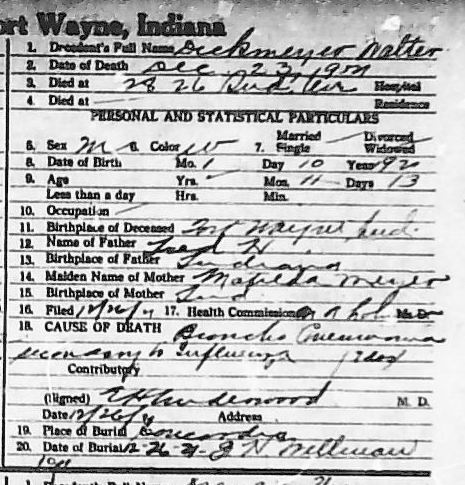 ort Wayne, Indiana
1. Decedent's Full Name Dickmeyer Walter
2. Date of Death Dec 23, 1921
3. Died at 2826 Ave Hospital
4. Died at Residence
PERSONAL AND STATISTICAL PARTICULARS
5. Sex M 6. Color W 7. Married Single Divorced Widowed
8. Date of Birth Mo. 1 Day 10 Year
9. Age Yrs. Mos. 11 Days 13
Less than a day Hrs. Min.
10. Occupation
11. Birthplace of Deceased Fort Wayne Ind.
12. Name of Father H
13. Birthplace of Father Indiana
14. Maiden Name of Mother Matilda Meyer
15. Birthplace of Mother Ind
16. Filed 12/26/21 17. Health Commissioner M. D.
18. CAUSE OF DEATH Broncho Pneumonia
secondary to Influenza
Contributory
(Signed) Underwood M. D.
Date 12/26/21 Address
19. Place of Burial Concordia
20. Date of Burial 12-26-21